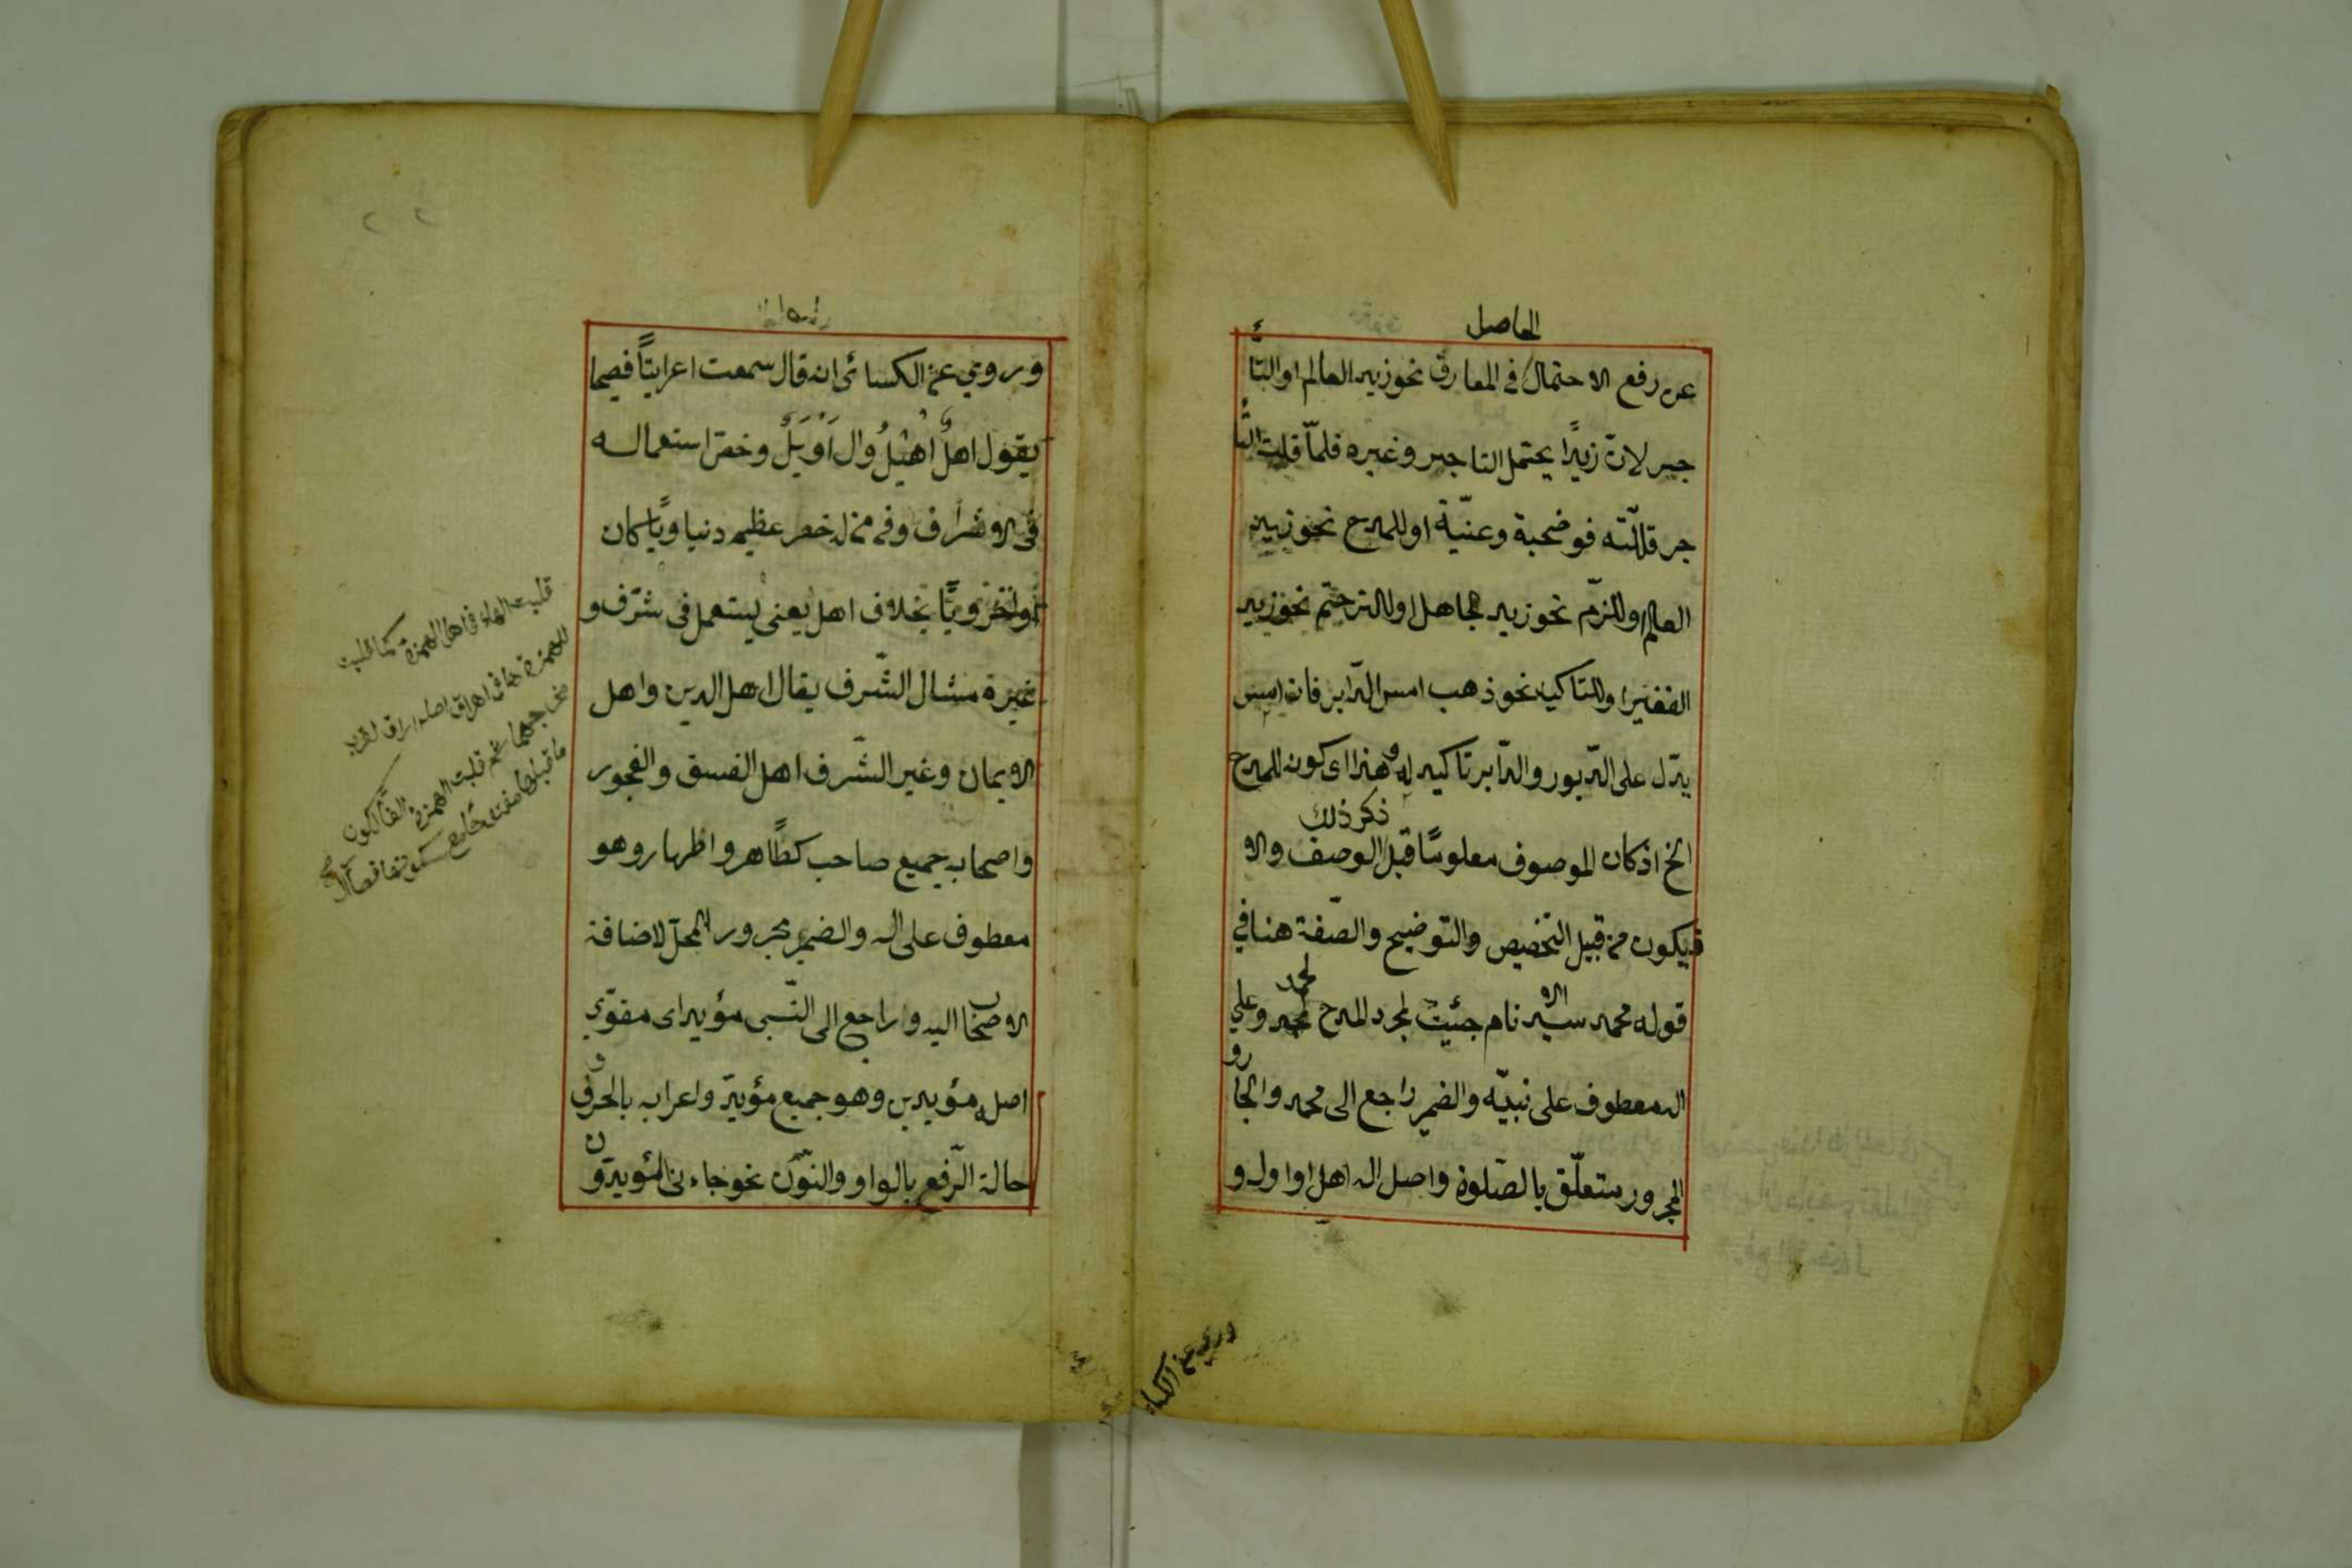 الحاصل
عن رفع الاحتمال في المعارف نحو زيد العالم او التا
جر لان زيدًا يحتمل التاجر وغيره فلمّا قلت التا
جر قللته فوضحبة وعنيّة او للمدح نحو زيد
العالم او للذم نحو زيد الجاهل او للترحم نحو زيد
الفقير او للتاكيد نحو ذهب امس الدّابر فان امس
يدّل على الدّبور والدّابر تاكيد له وهذا اى كونه للمدح
ذكر ذلك
الخ اذ كان الموصوف معلومًا قبل الوصف والا
فيكون من قبيل التخصيص والتوضيح والصّفة هنا في
قوله محمد سيد الانام جئيت لمجرد المدح لمحمد وعلي
اله معطوف على نبيّه والضمير راجع الى محمد والجار و
المجرور متعلّق بالصّلوة واصل اله اهل او اول و
وروي عن الكسا
وروي عن الكسائى انه قال سمعت اعرابيًّا فصيحا
يقول اهلٌ اُهَيْلُ وال اُوَيْلٌ وخص استعماله
فى الاشراف وفي من له خطر عظيم دنياويًّا كان
او اخرويًّا بخلاف اهل يعنى يستعمل فى شرّف و
غيره مثال الشّرف يقال اهل الدين واهل
الايمان وغير الشّرف اهل الفسق والفجور
واصحابه جميع صاحب كطاهر واطهار وهو
معطوف على اله والضمير مجرور المحلّ لاضافة
الاصحاب اليه وراجع الى النّبى مؤيد اى مقوّي
اصله مؤيدين وهو جميع مؤيدّ واعرابه بالحروف
حالة الرّفع بالواو والنّون نحو جاءنى المؤيدّون
قلبت الهاء فى اهل الهمزة كما قلبت
الهمزة هاء في اهراق اصله اراق لقرب
مخاجهما ثم قلبت الهمزة الفًا لكون